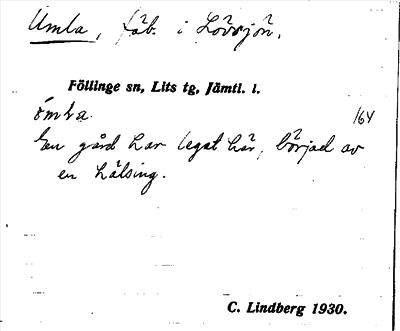 Umla, fäb. i Lövsjön.
Föllinge sn, Lits tg, Jämtl. l.
ömla. 164
En gård har legat här, börjad av
en hälsing.
C. Lindberg 1930.